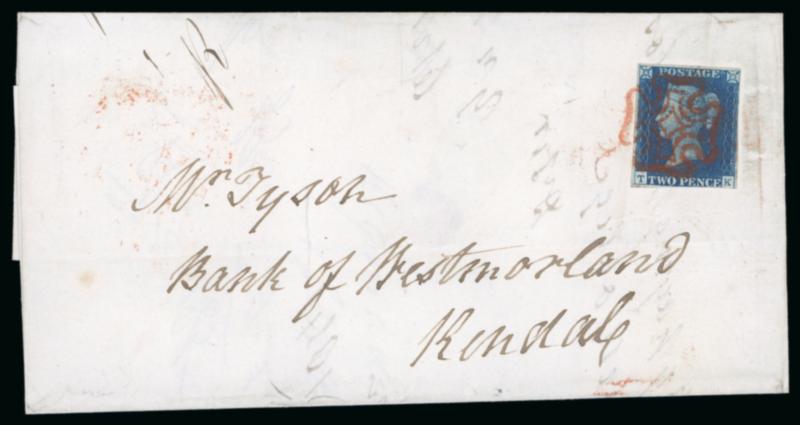 POSTAGE
T TWO PENCE K
Mr. Tyson
Bank of Westmorland
Kendal